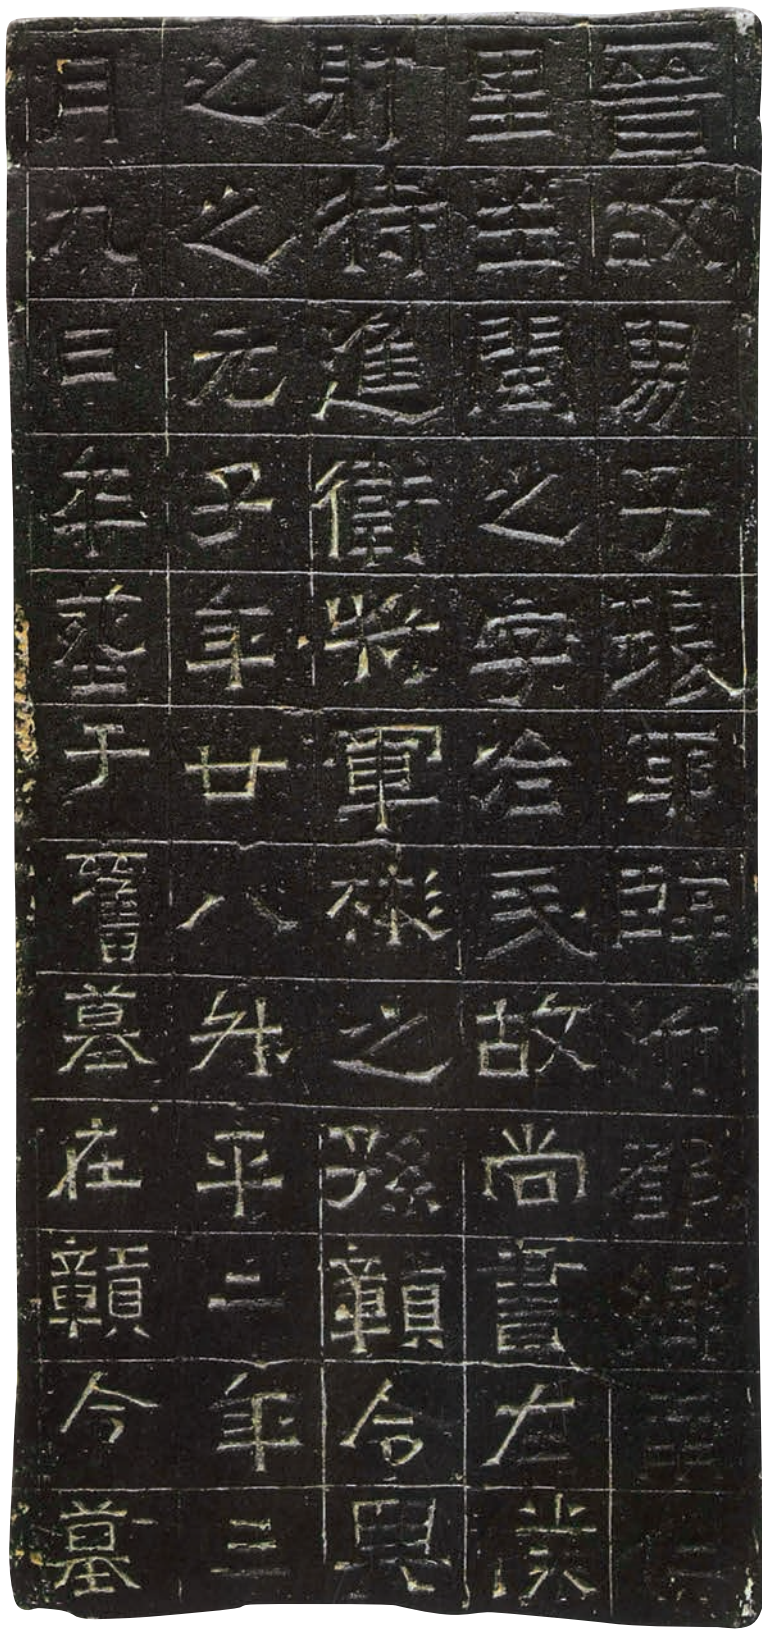 晉故男子琅耶臨沂都鄉南仁
里王閩之字冶民故尚書左僕
射特進衛將軍彬之孫贛令興
之之元子年廿八升平二年三
月九日卒葬于舊墓在贛令墓